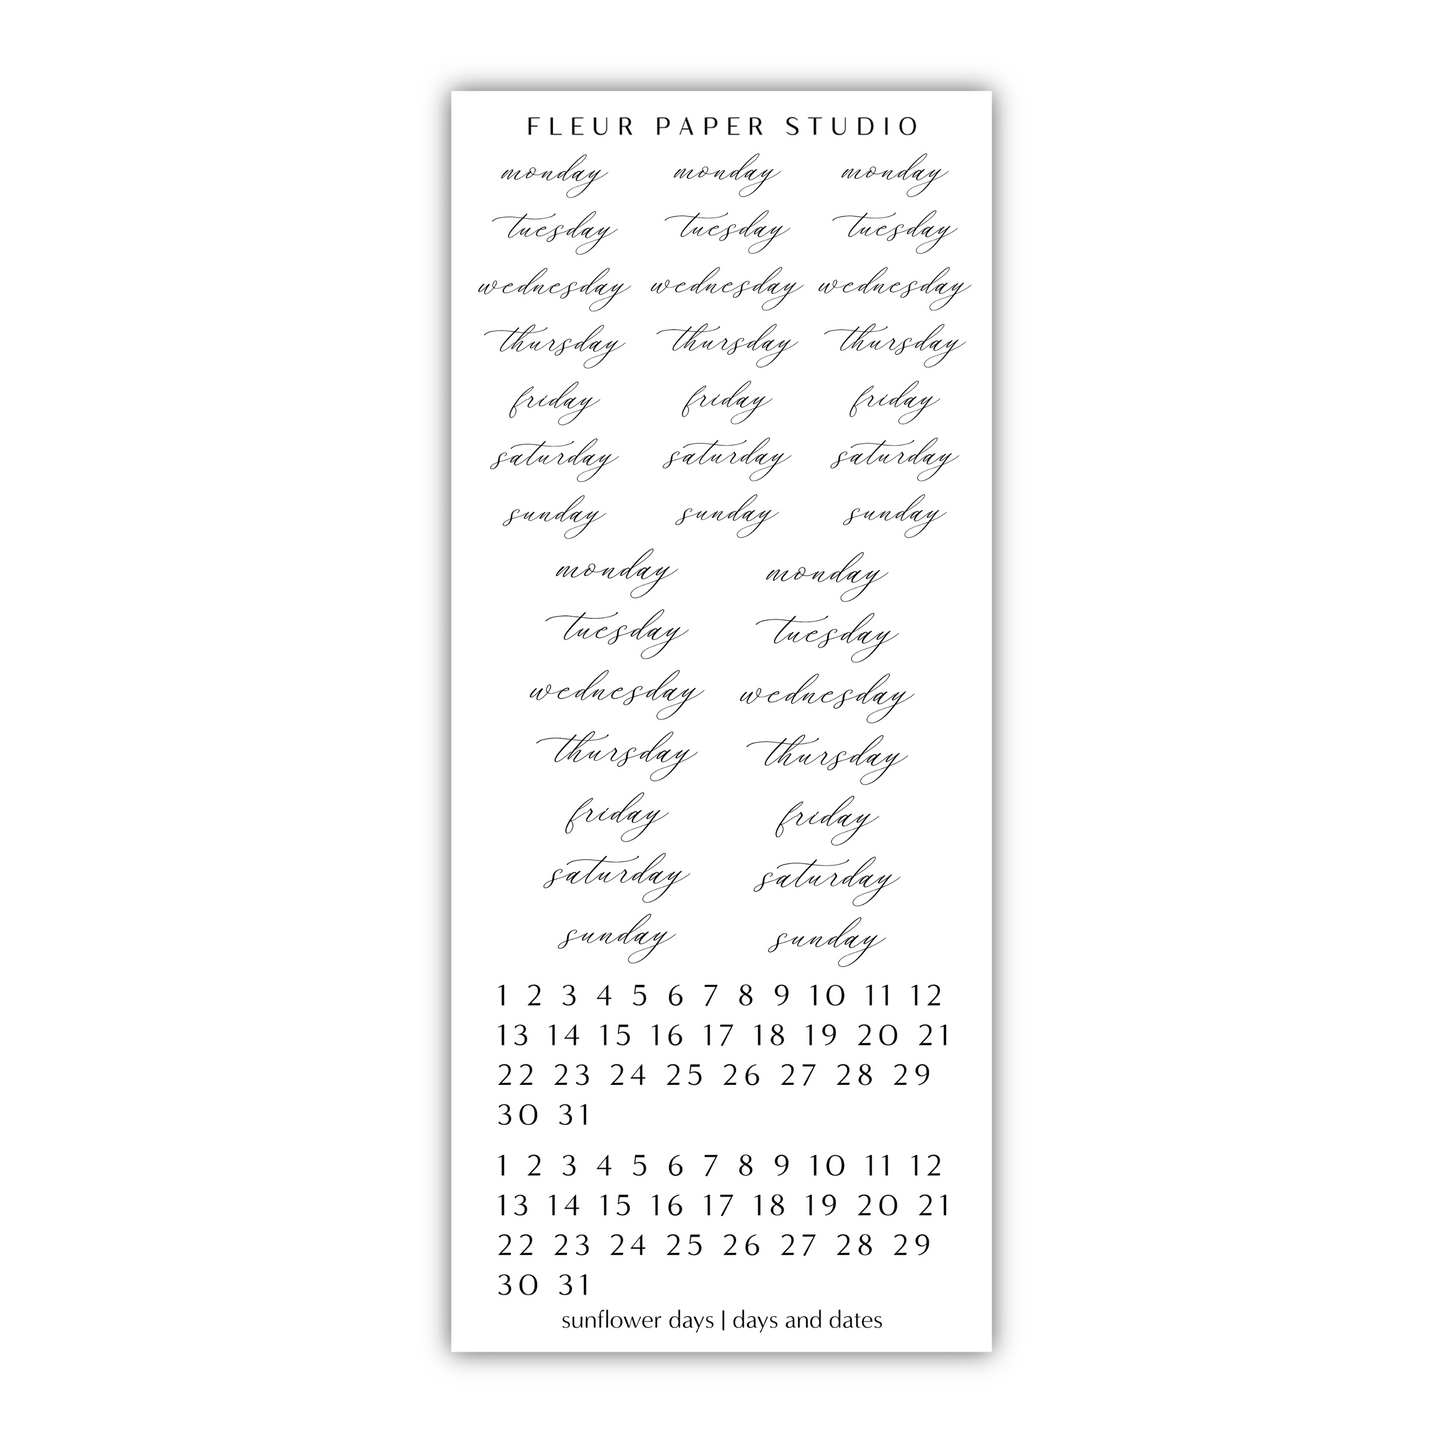 FLEUR PAPER STUDIO
monday monday monday
tuesday tuesday tuesday
wednesday wednesday wednesday
thursday thursday thursday
friday friday friday
saturday saturday saturday
sunday sunday sunday
monday monday
tuesday tuesday
wednesday wednesday
thursday thursday
friday friday
saturday saturday
sunday sunday
1 2 3 4 5 6 7 8 9 10 11 12
13 14 15 16 17 18 19 20 21
22 23 24 25 26 27 28 29
30 31
1 2 3 4 5 6 7 8 9 10 11 12
13 14 15 16 17 18 19 20 21
22 23 24 25 26 27 28 29
30 31
sunflower days | days and dates